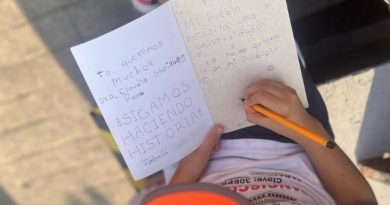 Te queremos
mucho!!
Dra Claudia Sheinbaum
Pardo
¡¡SIGAMOS
HACIENDO
HISTORIA!!
Isabella
Mi Pueblo
necesita una
universidad
ya no
de mi Pueblo!!
FRANCISCO
Clave: